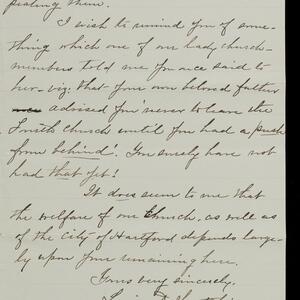 them.
I wish to remind you of some-
thing which one of our lady church-
members told me you once said to
her - viz: that your own beloved father
advised you 'never to leave the
South Church until you had a push
from behind'. You surely have not
had that yet!
It does seem to me that
the welfare of our Church, as well as
of the City of Hartford depends large-
ly upon your remaining here.
Yours very sincerely,